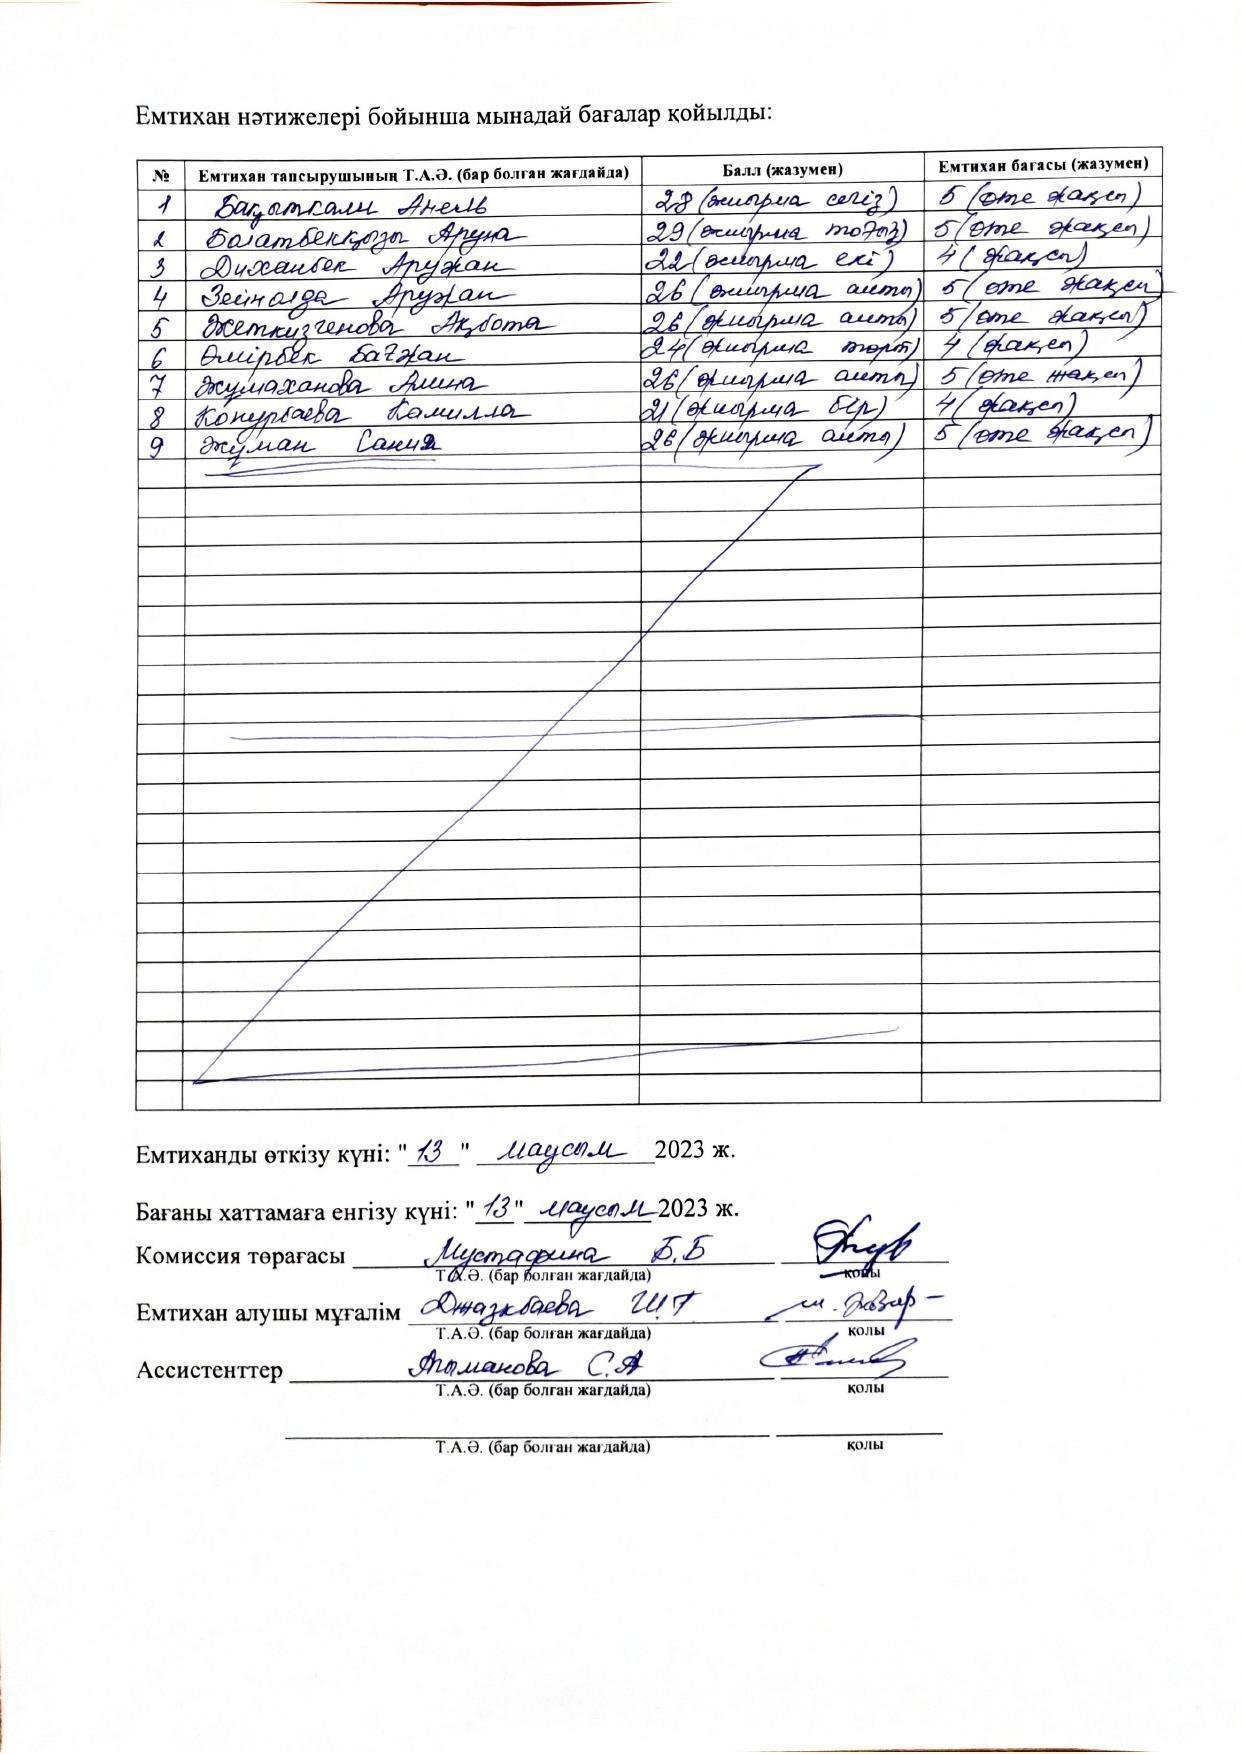 Емтихан нәтижелері бойынша мынадай бағалар қойылды:
№ Емтихан тапсырушының Т.А.Ә. (бар болған жағдайда) Балл (жазумен) Емтихан бағасы (жазумен)
1 Бақытқали Анель 28 (жиырма сегіз) 5 (өте жақсы)
2 Болатбекқызы Аруна 29 (жиырма тоғыз) 5 (өте жақсы)
3 Диханбек Аружан 22 (жиырма екі) 4 (жақсы)
4 Зейнолда Аружан 26 (жиырма алты) 5 (өте жақсы)
5 Жеткизгенова Ақбота 26 (жиырма алты) 5 (өте жақсы)
6 Өмірбек Бағжан 24 (жиырма төрт) 4 (жақсы)
7 Жумаханова Амина 26 (жиырма алты) 5 (өте жақсы)
8 Конурбаева Камилла 21 (жиырма бір) 4 (жақсы)
9 Жұман Сания 26 (жиырма алты) 5 (өте жақсы)
Емтиханды өткізу күні: "13" маусым 2023 ж.
Бағаны хаттамаға енгізу күні: "13" маусым 2023 ж.
Комиссия төрағасы Мустафина Б.Б
Т.А.Ә. (бар болған жағдайда) қолы
Емтихан алушы мұғалім Джазкбаева Ш.Т
Т.А.Ә. (бар болған жағдайда) қолы
Ассистенттер Атыманова С.А
Т.А.Ә. (бар болған жағдайда) қолы
Т.А.Ә. (бар болған жағдайда) қолы